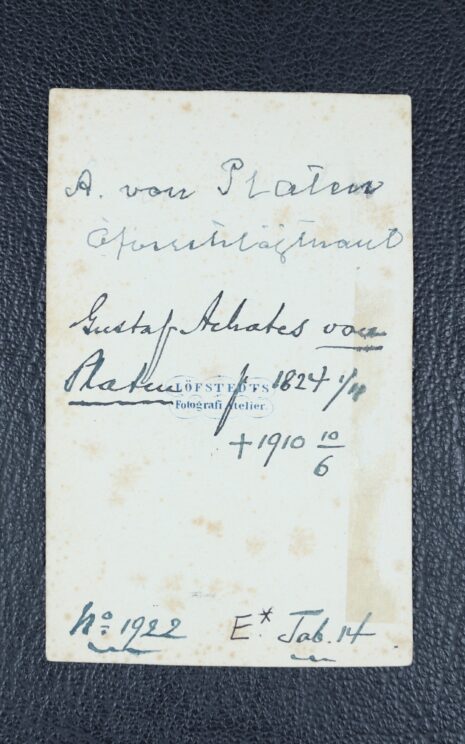 A. von Platen
öfverstelöjtnant
Gustaf Achates von
Platen f 1824 1/11
LÖFSTEDTS
Fotografi Atelier.
+ 1910 10/6
No 1922 E.* Tab. 14.